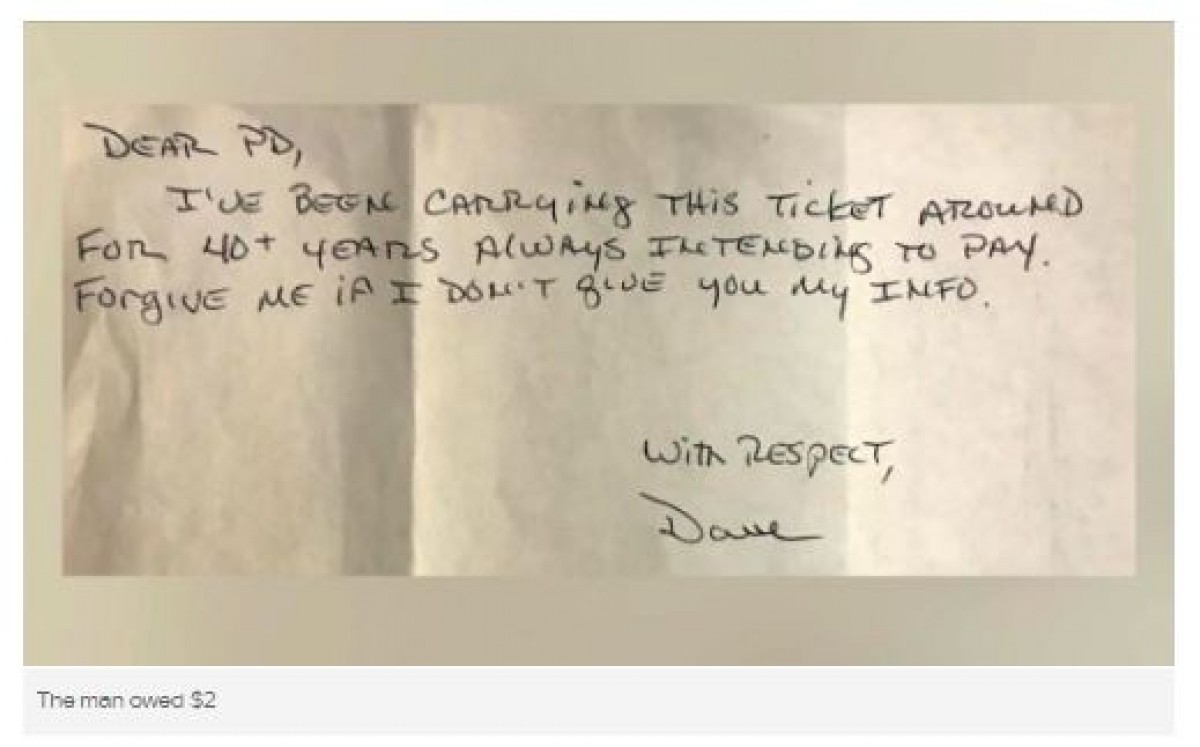 DEAR PD,
I'VE BEEN CARRYING THIS TICKET AROUND
FOR 40+ YEARS ALWAYS INTENDING TO PAY.
FORGIVE ME IF I DON'T GIVE YOU MY INFO.
WITH RESPECT,
Dave
The man owed $2